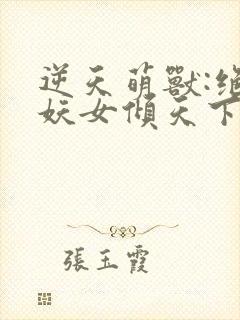 逆天萌獸:絕
妖女傾天下
張玉霞